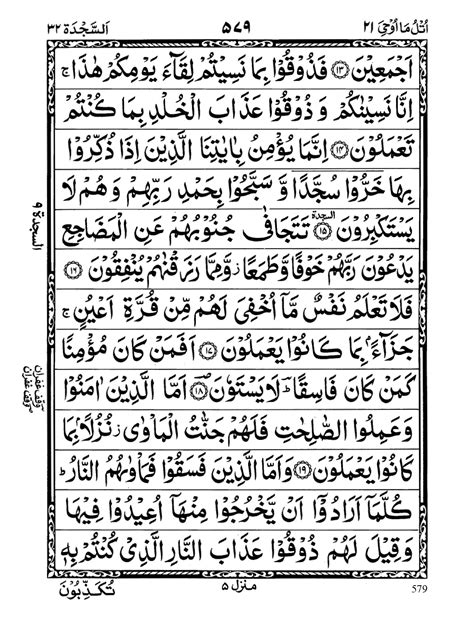 اُتْلُ مَآ اُوْحِیَ ٢١ ٥٧٩ اَلسَّجْدَة ٣٢
اَجْمَعِیْنَ ⁝١٣ فَذُوْقُوْا بِمَا نَسِیْتُمْ لِقَآءَ یَوْمِكُمْ هٰذَا ۚ
اِنَّا نَسِیْنٰكُمْ وَ ذُوْقُوْا عَذَابَ الْخُلْدِ بِمَا كُنْتُمْ
تَعْمَلُوْنَ ١٤ اِنَّمَا یُؤْمِنُ بِاٰیٰتِنَا الَّذِیْنَ اِذَا ذُكِّرُوْا
بِهَا خَرُّوْا سُجَّدًا وَّ سَبَّحُوْا بِحَمْدِ رَبِّهِمْ وَ هُمْ لَا
یَسْتَكْبِرُوْنَ ١٥ السجدة تَتَجَافٰی جُنُوْبُهُمْ عَنِ الْمَضَاجِعِ
یَدْعُوْنَ رَبَّهُمْ خَوْفًا وَّ طَمَعًا ز وَّ مِمَّا رَزَقْنٰهُمْ یُنْفِقُوْنَ ١٦
فَلَا تَعْلَمُ نَفْسٌ مَّاۤ اُخْفِیَ لَهُمْ مِّنْ قُرَّةِ اَعْیُنٍ ۚ
جَزَآءًۢ بِمَا كَانُوْا یَعْمَلُوْنَ ١٧ اَفَمَنْ كَانَ مُؤْمِنًا
كَمَنْ كَانَ فَاسِقًا ؕ لَا یَسْتَوٗنَ ١٨ اَمَّا الَّذِیْنَ اٰمَنُوْا
وَ عَمِلُوا الصّٰلِحٰتِ فَلَهُمْ جَنّٰتُ الْمَاْوٰی ز نُزُلًۢا بِمَا
كَانُوْا یَعْمَلُوْنَ ١٩ وَ اَمَّا الَّذِیْنَ فَسَقُوْا فَمَاْوٰىهُمُ النَّارُ ؕ
كُلَّمَاۤ اَرَادُوْۤا اَنْ یَّخْرُجُوْا مِنْهَاۤ اُعِیْدُوْا فِیْهَا
وَ قِیْلَ لَهُمْ ذُوْقُوْا عَذَابَ النَّارِ الَّذِیْ كُنْتُمْ بِهٖ
السجدة ٩
وقف غفران
وقف غفران
تُكَذِّبُوْنَ منزل ٥ 579